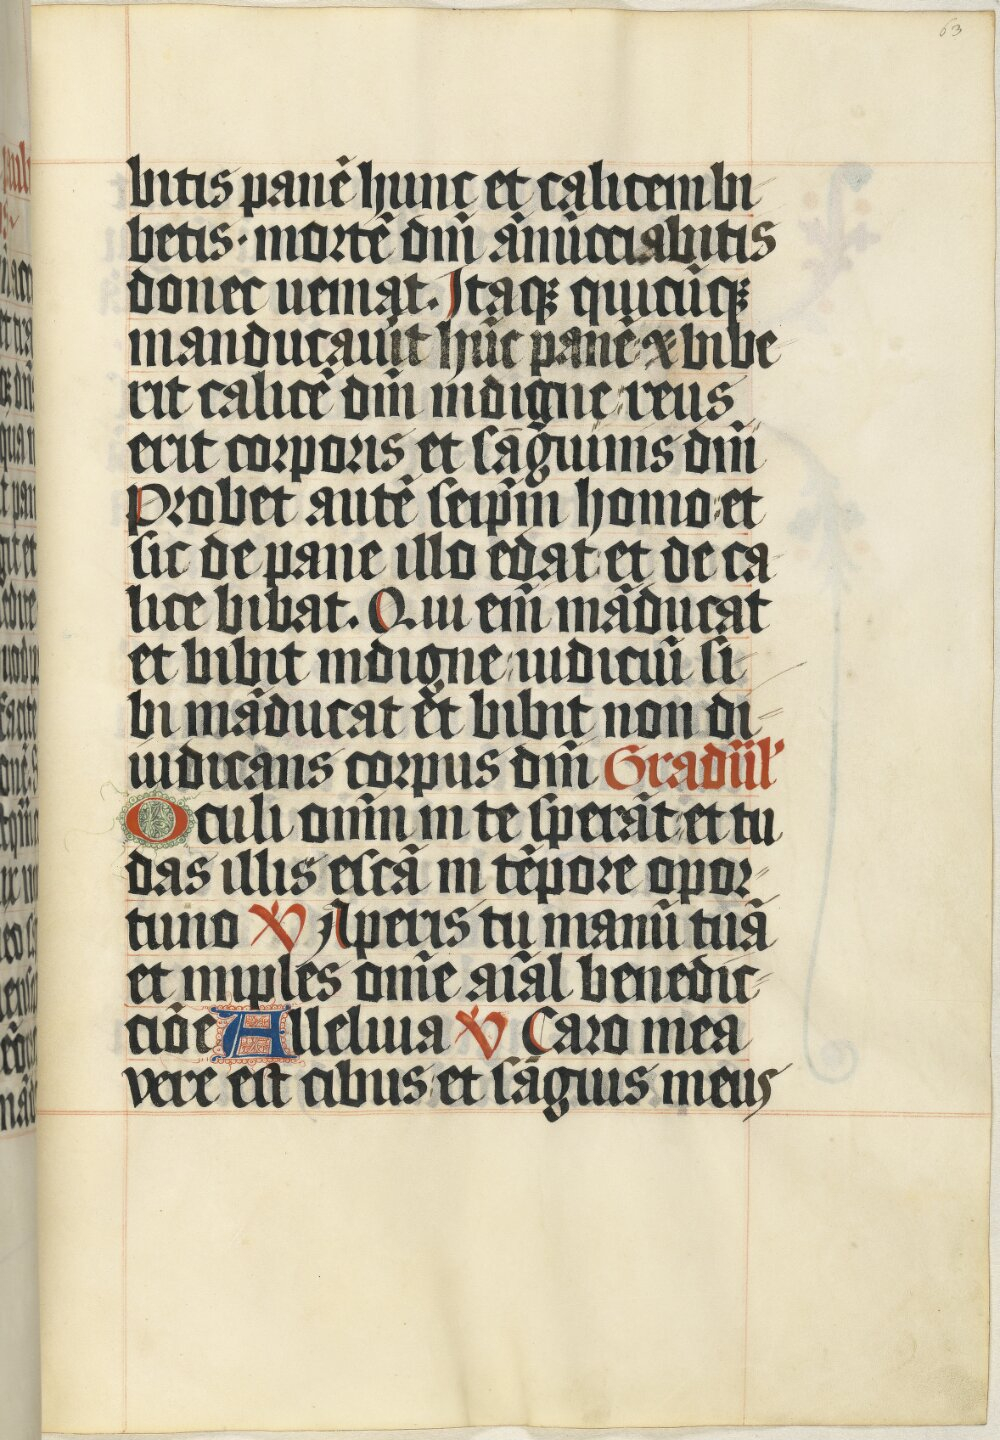 63
bitis panē hunc et calicem bi
betis· mortē dn̄i ān̄ūcciabitis
donec ueniat. Itaqꝫ quicūqꝫ
manducauit hūc panē ⁊ bibe
rit calicē dn̄i indigne reus
erit corporis et sāḡuinis dn̄i
Probet autē seip̄m homo et
sic de pane illo edat et de ca
lice bibat. Qui em̄ māducat
et bibit indigne iudiciū si
bi māducat et bibit non di
iudicans corpus dn̄i Gradūl'
Oculi om̄m in te sperāt et tu
das illis escā in tēpore opor
tuno ℣ Aperis tu manū tuā
et imples om̄e aīal benedic
ciōe Alleluia ℣ Caro mea
vere est cibus et sāguis meus